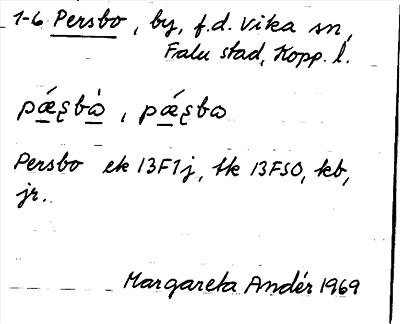 1-6 Persbo, by, f.d. Vika sn,
Falu stad, Kopp. l.
pǽʂbὼ, pǽʂbω
Persbo ek 13F1j, tk 13FSO, kb,
jr.
Margareta Andér 1969